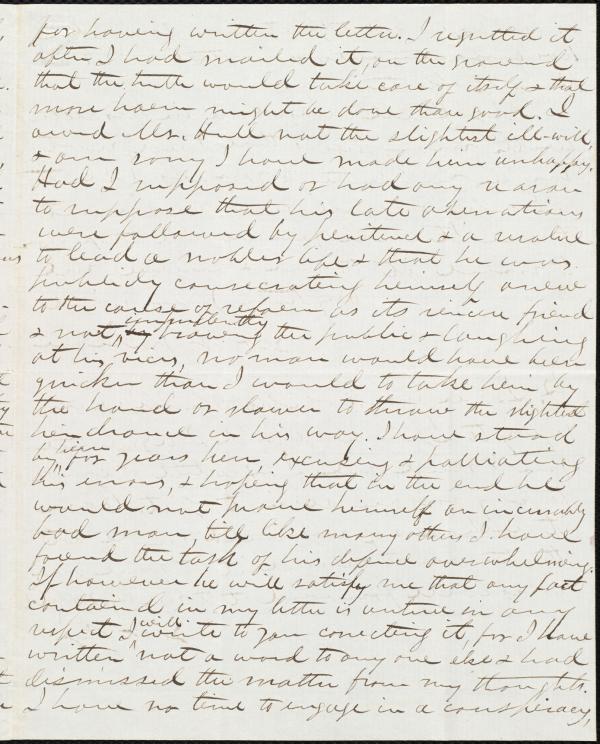 for having written the letter. I regretted it
after I had mailed it, on the ground
that the truth would take care of itself & that
more harm might be done than good. I
owed Mr. Hull not the slightest ill-will,
& am sorry I have made him unhappy.
Had I supposed or had any reason
to suppose that his late aberrations
were followed by penitence & a resolve
to lead a nobler life & that he was
publicly consecrating himself anew
to the cause of reform as its sincere friend
& not impudently braving the public & laughing
at his vices, no man would have been
quicker than I would to take him by
the hand or slower to throw the slightest
hindrance in his way. I have stood
by him for years here, excusing & palliating
his errors, & hoping that in the end he
would not prove himself an incurably
bad man, till like many others I have
found the task of his defence overwhelming.
If however he will satisfy me that any fact
contained in my letter is untrue in any
respect I will write to you correcting it, for I have
written not a word to any one else & had
dismissed the matter from my thoughts.
I have no time to engage in a conspiracy,